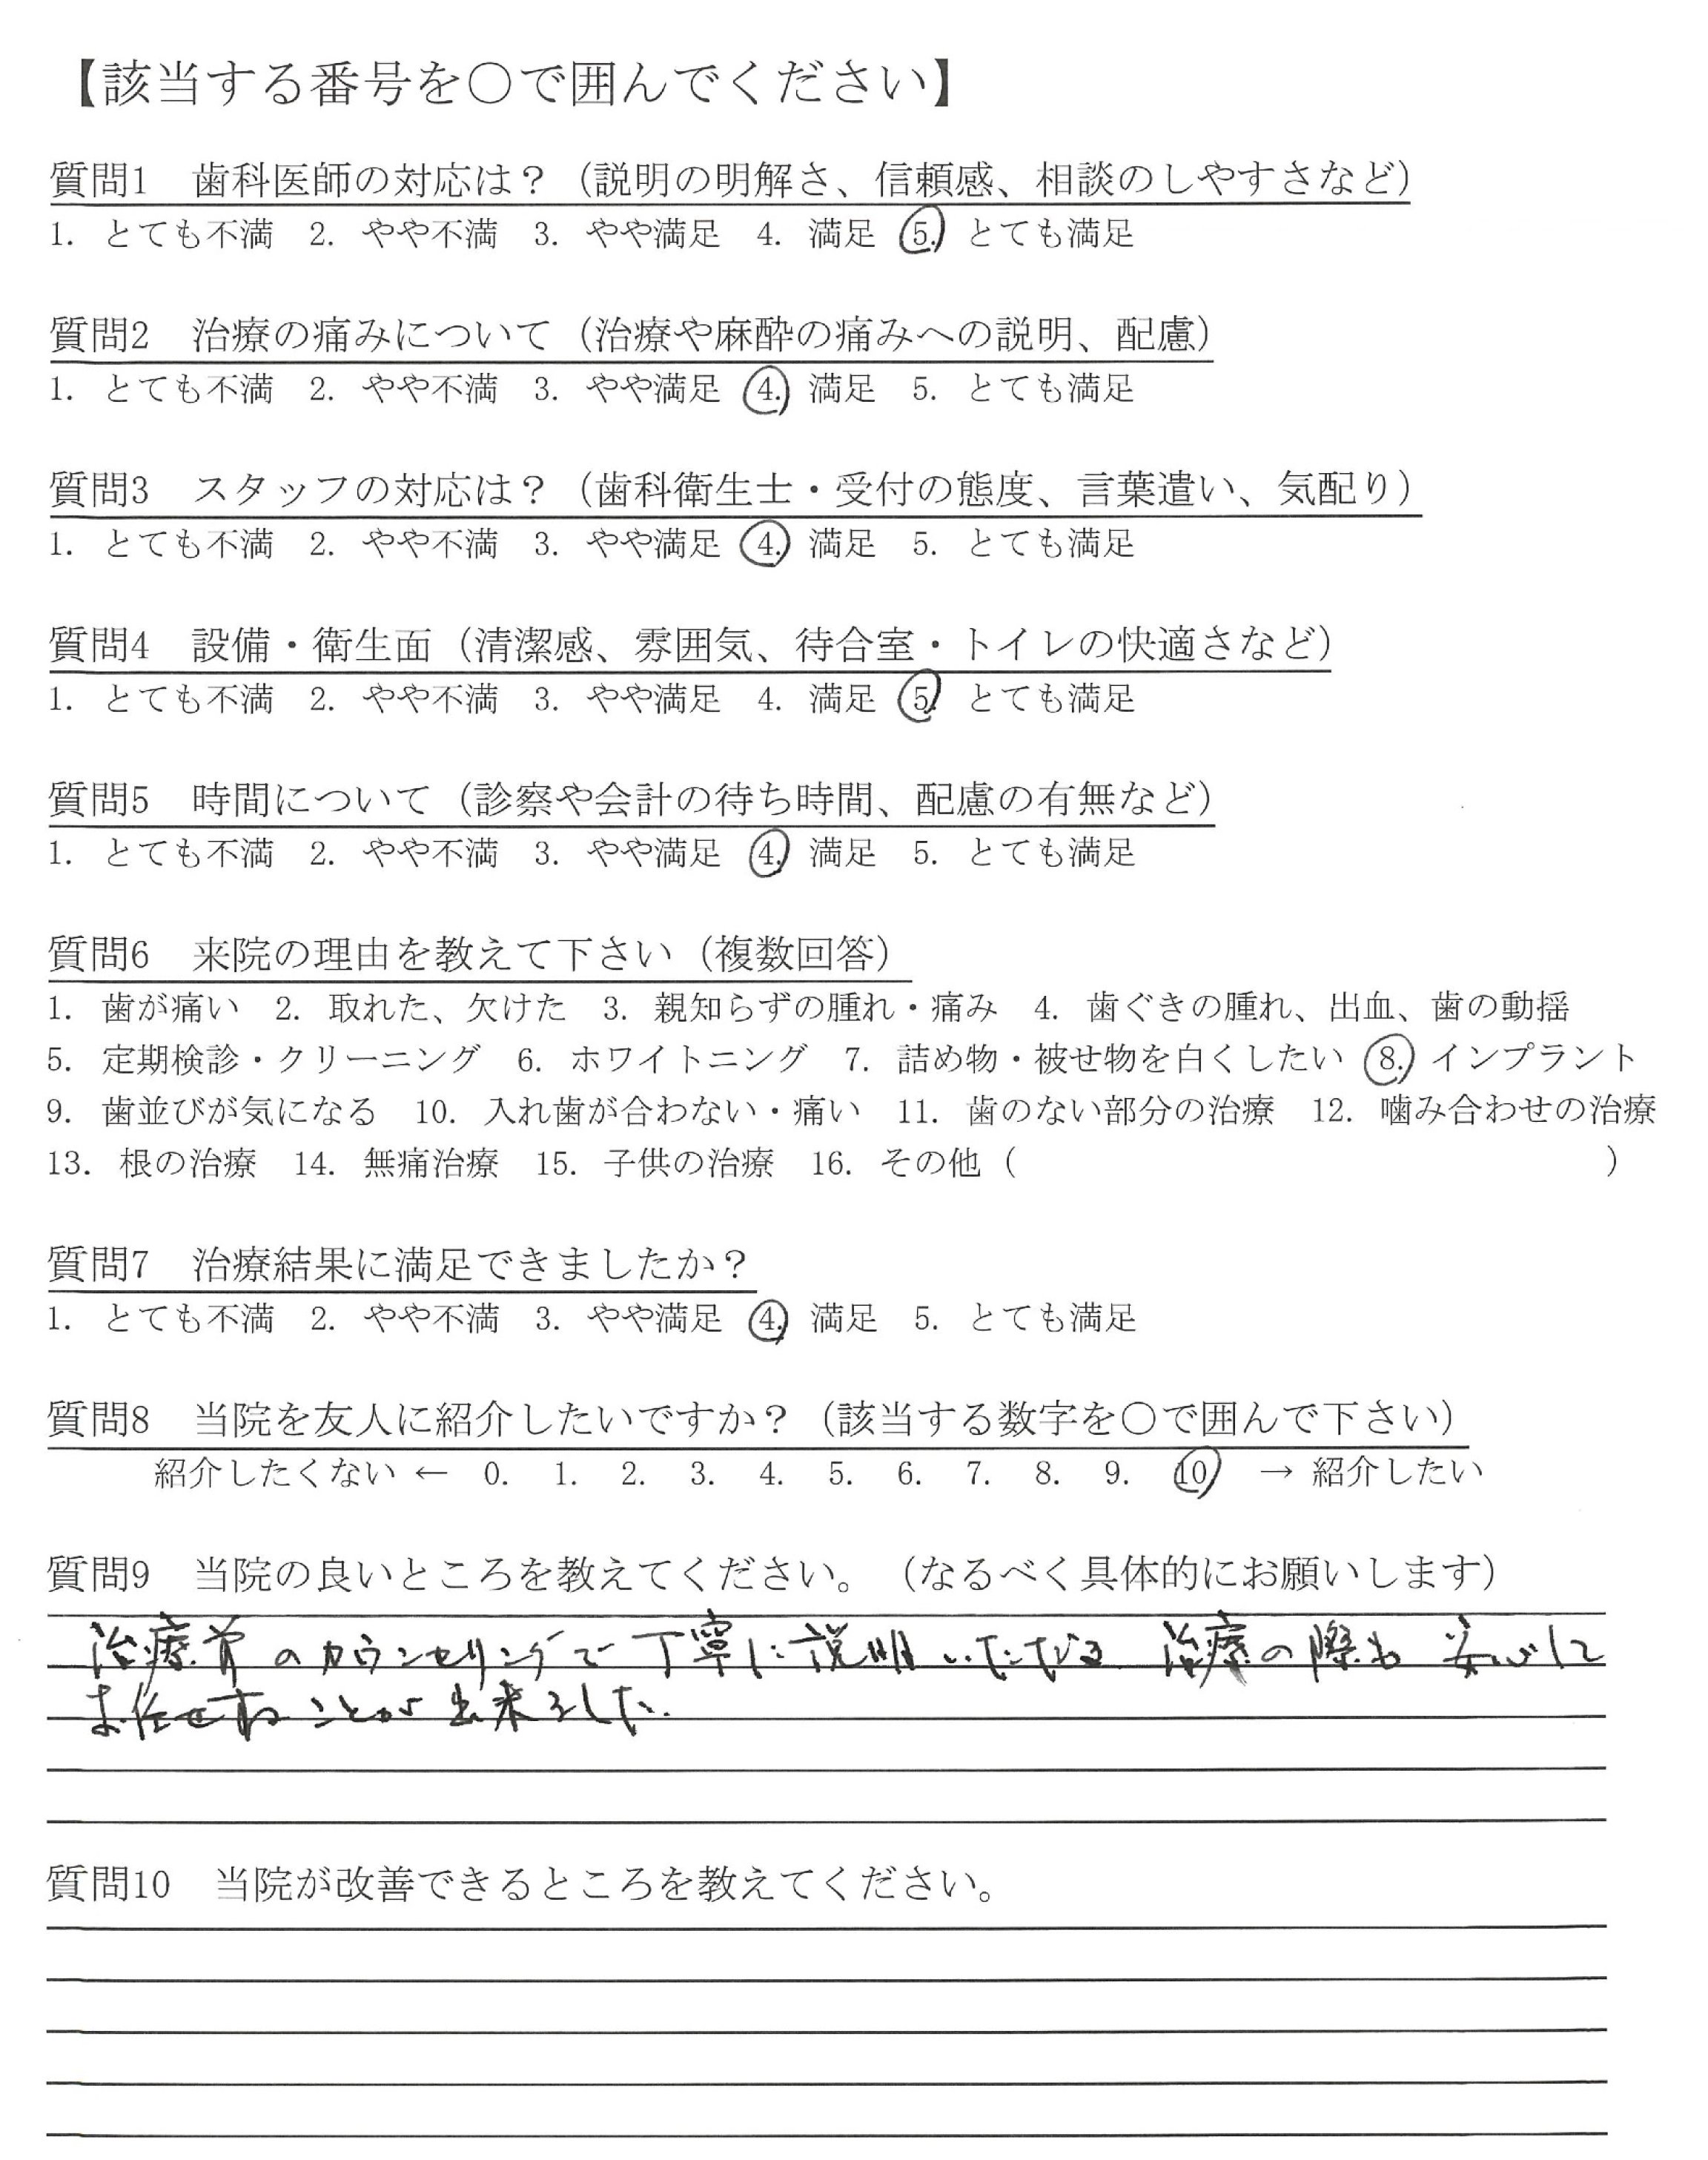 【該当する番号を○で囲んでください】
質問1　歯科医師の対応は？（説明の明解さ、信頼感、相談のしやすさなど）
1. とても不満　2. やや不満　3. やや満足　4. 満足　5. とても満足
質問2　治療の痛みについて（治療や麻酔の痛みへの説明、配慮）
1. とても不満　2. やや不満　3. やや満足　4. 満足　5. とても満足
質問3　スタッフの対応は？（歯科衛生士・受付の態度、言葉遣い、気配り）
1. とても不満　2. やや不満　3. やや満足　4. 満足　5. とても満足
質問4　設備・衛生面（清潔感、雰囲気、待合室・トイレの快適さなど）
1. とても不満　2. やや不満　3. やや満足　4. 満足　5. とても満足
質問5　時間について（診察や会計の待ち時間、配慮の有無など）
1. とても不満　2. やや不満　3. やや満足　4. 満足　5. とても満足
質問6　来院の理由を教えて下さい（複数回答）
1. 歯が痛い　2. 取れた、欠けた　3. 親知らずの腫れ・痛み　4. 歯ぐきの腫れ、出血、歯の動揺
5. 定期検診・クリーニング　6. ホワイトニング　7. 詰め物・被せ物を白くしたい　8. インプラント
9. 歯並びが気になる　10. 入れ歯が合わない・痛い　11. 歯のない部分の治療　12. 噛み合わせの治療
13. 根の治療　14. 無痛治療　15. 子供の治療　16. その他（　　　　　　　　　　　　　　）
質問7　治療結果に満足できましたか？
1. とても不満　2. やや不満　3. やや満足　4. 満足　5. とても満足
質問8　当院を友人に紹介したいですか？（該当する数字を○で囲んで下さい）
紹介したくない ← 0. 1. 2. 3. 4. 5. 6. 7. 8. 9. 10 → 紹介したい
質問9　当院の良いところを教えてください。（なるべく具体的にお願いします）
治療前のカウンセリングで丁寧に説明いただき 治療の際も 安心して
お任せすることが出来ました.
質問10　当院が改善できるところを教えてください。